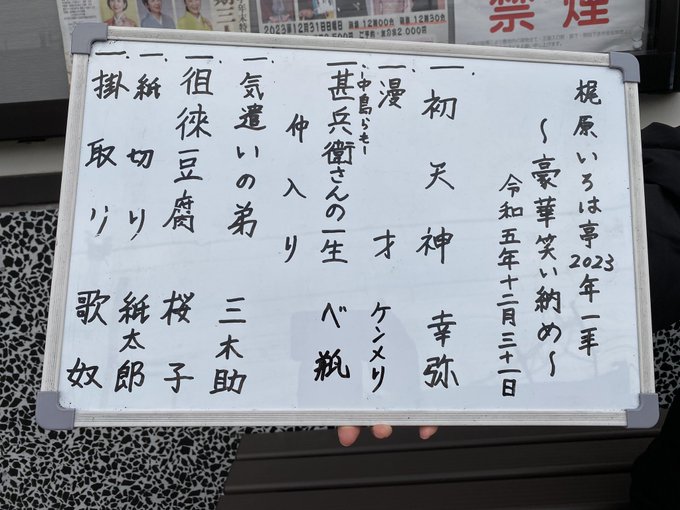 2023年12月31日日曜日
禁煙
梶原いろは亭2023年一年
～豪華笑い納め～
令和五年十二月三十一日
一、初天神 幸弥
一、漫才 ケンメリ
一、甚兵衛さんの一生 べ瓶
～中島らも～
仲入り
一、気遣いの弟 三木助
一、徂徠豆腐 桜子
一、紙切り 紙太郎
一、掛取り 歌奴